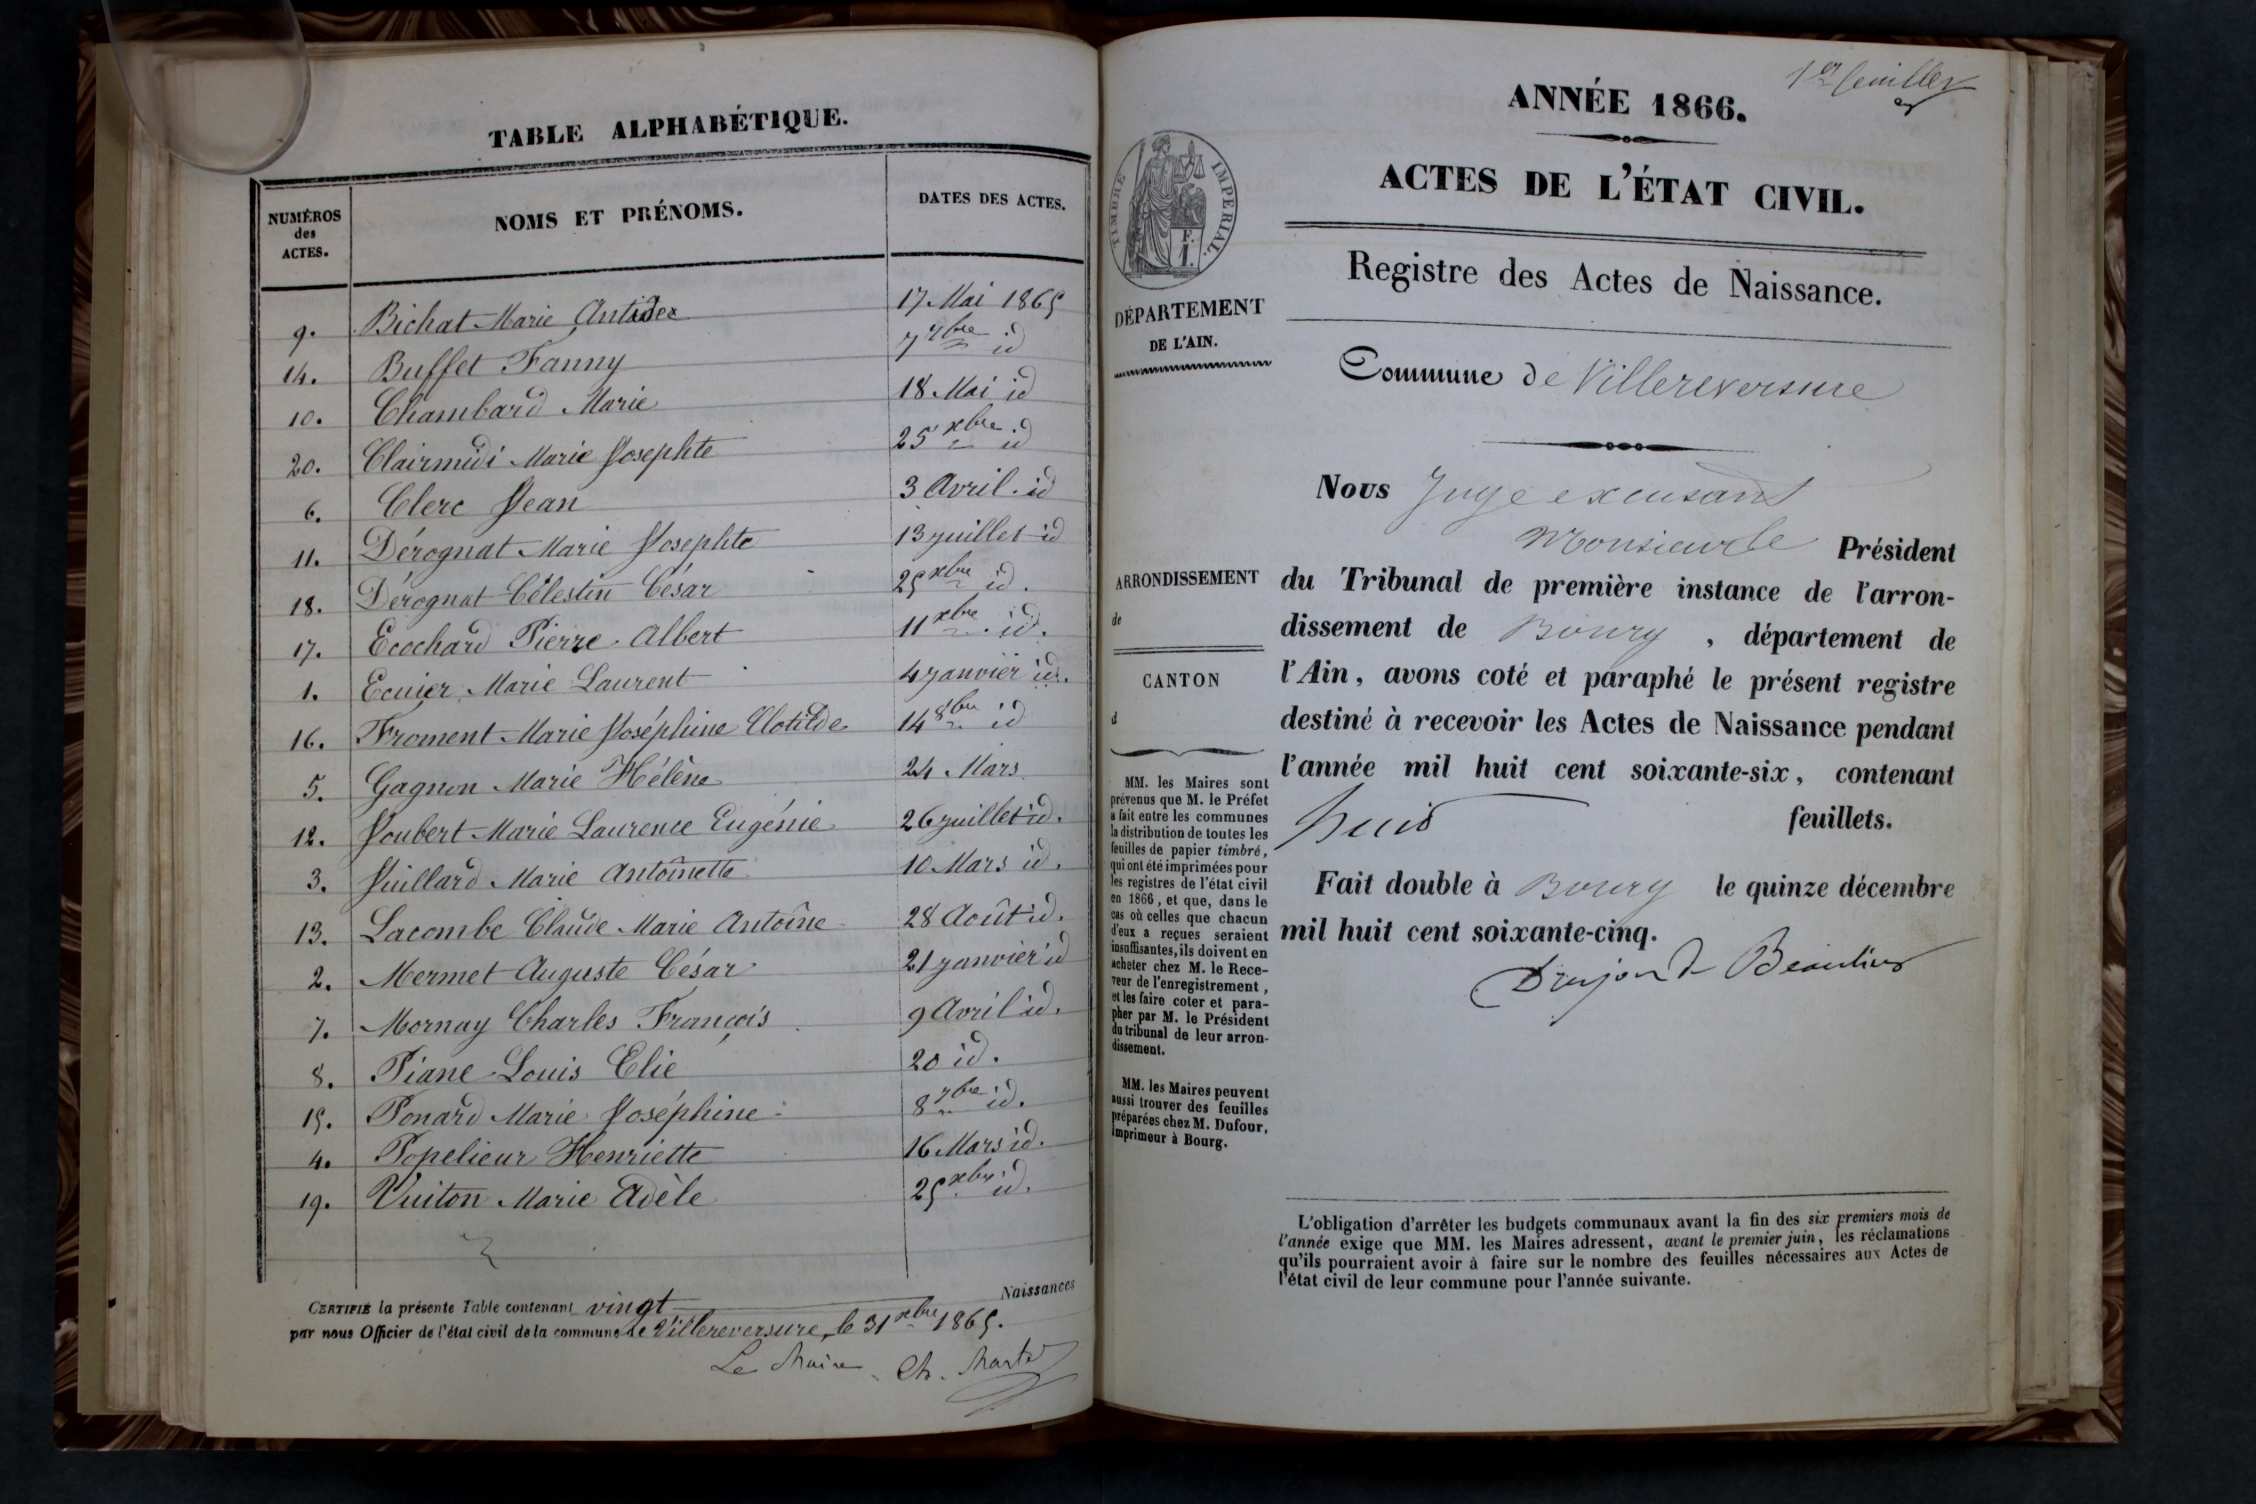 TABLE ALPHABÉTIQUE.
NUMÉROS des ACTES. NOMS ET PRÉNOMS. DATES DES ACTES.
9. Bichat Marie Antider 17 Mai 1865
14. Buffet Fanny 7 7bre id
10. Chambard Marie 18 Mai id
20. Clairmidi Marie Josephte 25 xbre id
6. Clerc Jean 3 Avril. id
11. Dérognat Marie Josephte 13 juillet id
18. Dérognat Célestin César 25 xbre id.
17. Ecochard Pierre Albert 11 xbre id.
1. Ecuier Marie Laurent 4 janvier id.
16. Froment Marie Joséphine Clotilde 14 8bre id
5. Gagnon Marie Hélène 24 Mars
12. Joubert Marie Laurence Eugénie 26 juillet id.
3. Juillard Marie Antoinette 10 Mars id.
13. Lacombe Claude Marie Antoine 28 Août id.
2. Mermet Auguste César 21 janvier id
7. Mornay Charles François 9 Avril id.
8. Piane Louis Elie 20 id.
15. Ponard Marie Joséphine 8 7bre id.
4. Popelieur Henriette 16 Mars id.
19. Vuiton Marie Adèle 25 xbre id.
CERTIFIÉ la présente Table contenant vingt Naissances
par nous Officier de l'état civil de la commune de Villereversure, le 31 xbre 1865.
Le Maire Ch.
1er feuillet
ANNÉE 1866.
ACTES DE L'ÉTAT CIVIL.
TIMBRE IMPERIAL.
F.
1.
Registre des Actes de Naissance.
DÉPARTEMENT
DE L'AIN.
Commune de Villereversure
Nous Juge excusant
Monsieur le Président
du Tribunal de première instance de l'arron-
dissement de Bourg, département de
l'Ain, avons coté et paraphé le présent registre
destiné à recevoir les Actes de Naissance pendant
l'année mil huit cent soixante-six, contenant
huit feuillets.
Fait double à Bourg le quinze décembre
mil huit cent soixante-cinq.
Beaulieu
ARRONDISSEMENT
de
CANTON
d
MM. les Maires sont
prévenus que M. le Préfet
a fait entre les communes
la distribution de toutes les
feuilles de papier timbré,
qui ont été imprimées pour
les registres de l'état civil
en 1866, et que, dans le
cas où celles que chacun
d'eux a reçues seraient
insuffisantes, ils doivent en
acheter chez M. le Rece-
veur de l'enregistrement,
et les faire coter et para-
pher par M. le Président
du tribunal de leur arron-
dissement.
MM. les Maires peuvent
aussi trouver des feuilles
préparées chez M. Dufour,
imprimeur à Bourg.
L'obligation d'arrêter les budgets communaux avant la fin des six premiers mois de
l'année exige que MM. les Maires adressent, avant le premier juin, les réclamations
qu'ils pourraient avoir à faire sur le nombre des feuilles nécessaires aux Actes de
l'état civil de leur commune pour l'année suivante.